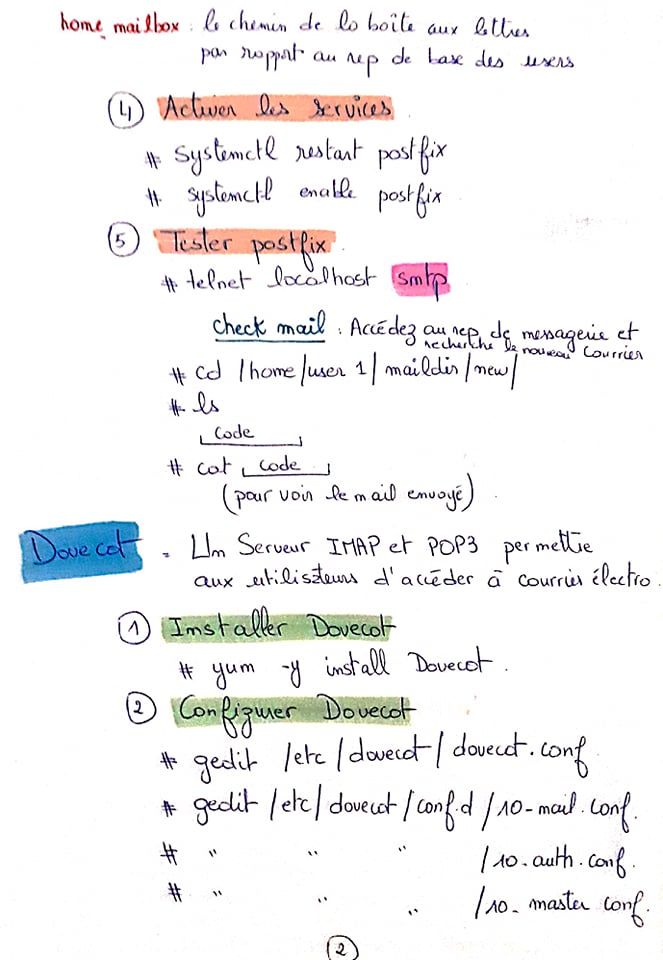 home_mailbox : le chemin de la boîte aux lettres
par rapport au rep de base des users
4 Activer les services
# Systemctl restart postfix
# systemctl enable postfix
5 Tester postfix
# telnet localhost smtp
check mail : Accédez au rep de messagerie et
recherche le nouveau courrier
# cd /home/user 1/maildir/new/
# ls
code
# cat code
(pour voir le mail envoyé)
Dovecot = Un Serveur IMAP et POP3 permettre
aux utilisateurs d'accéder à courrier électro.
1 Installer Dovecot
# yum -y install Dovecot.
2 Configurer Dovecot
# gedit /etc/dovecot/dovecot.conf
# gedit /etc/dovecot/conf.d/10-mail.conf.
# " " " /10-auth.conf.
# " " " /10-master conf.
2